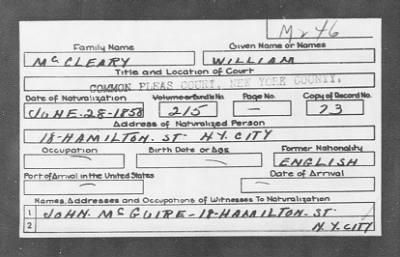 M246
Family Name Given Name or Names
McCLEARY WILLIAM
Title and Location of Court
COMMON PLEAS COURT, NEW YORK COUNTY.
Date of Naturalization Volume or Bundle No. Page No. Copy of Record No.
JUNE-28-1858 215 — 23
Address of Naturalized Person
18-HAMILTON-ST N.Y. CITY
Occupation Birth Date or Age Former Nationality
— — ENGLISH
Port of Arrival in the United States Date of Arrival
— —
Names, Addresses and Occupations of Witnesses To Naturalization
1 JOHN. McGUIRE-18-HAMILTON-ST
2 N.Y. CITY